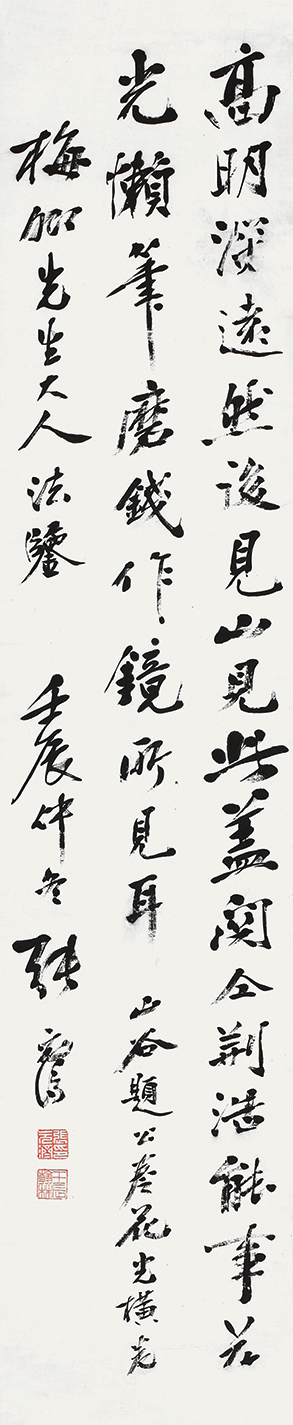 高明深遠然後見山見此蓋關仝荊浩能事花
光懶筆磨錢作鏡所見耳 山谷題公卷花光橫卷
梅卿先生大人法鑒 壬辰仲冬 張